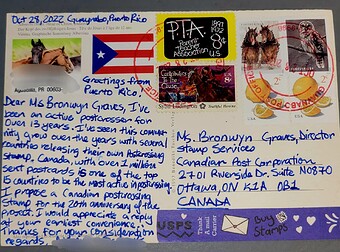 Oct 28, 2022 Guaynabo, Puerto Rico
Aguadilla, PR 00603
Greetings from
Puerto Rico!
Dear Ms Bronwyn Graves, I've
been an active postcrosser for
over 13 years. I've seen this commu-
nity grow over the years with several
countries releasing their own Postcrossing
stamp. Canada, with over 2 million
sent postcards is one of the top
10 countries to be the most active in postcrossing.
I propose a Canadian postcrossing
Stamp for the 20th anniversary of the
project. I would appreciate a reply
at your earliest convenience.
Thanks for your consideration
regards
P.T.A.
Parent
Teacher
Association
1897
1972
8¢
U.S.
Contributors
To The
Cause
8¢
Sybil Ludington
Youthful Heroine
Ms. Bronwyn Graves, Director
Stamp Services
Canadian Post Corporation
2701 Riverside Dr. Suite N0870
Ottawa, ON K1A 0B1
CANADA
USPS
Thank
A
Mail
Carrier
BUY
Stamps